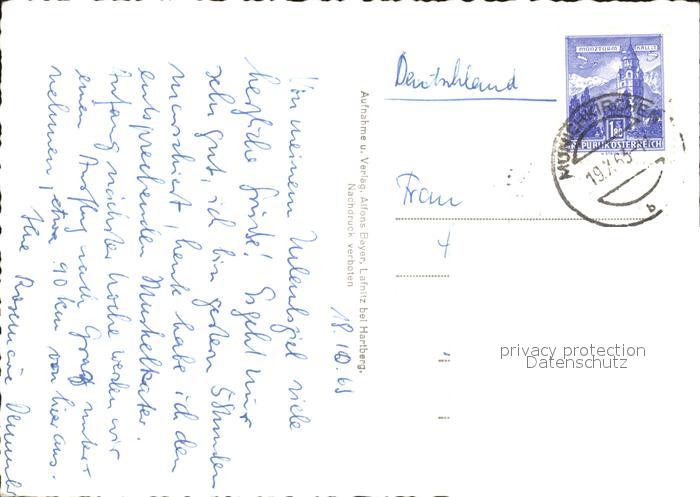 18.10.65
Von meinem Urlaubsziel viele
herzliche Grüße! Es geht mir
sehr gut, ich bin gestern 5 Stunden
marschiert, heute habe ich den
entsprechenden Muskelkater.
Anfang nächster Woche werden wir
einen Ausflug nach Graz unter-
nehmen, etwa 90 km von hier aus.
Ihre Rosemarie
Aufnahme u. Verlag: Alfons Bayer, Lafnitz bei Hartberg.
Nachdruck verboten
Deutschland
Frau
MÜNZTURM HALL I.T.
S 1.80
REPUBLIK ÖSTERREICH
MÖNICHKIRCHEN
19.X.65
b
privacy protection
Datenschutz